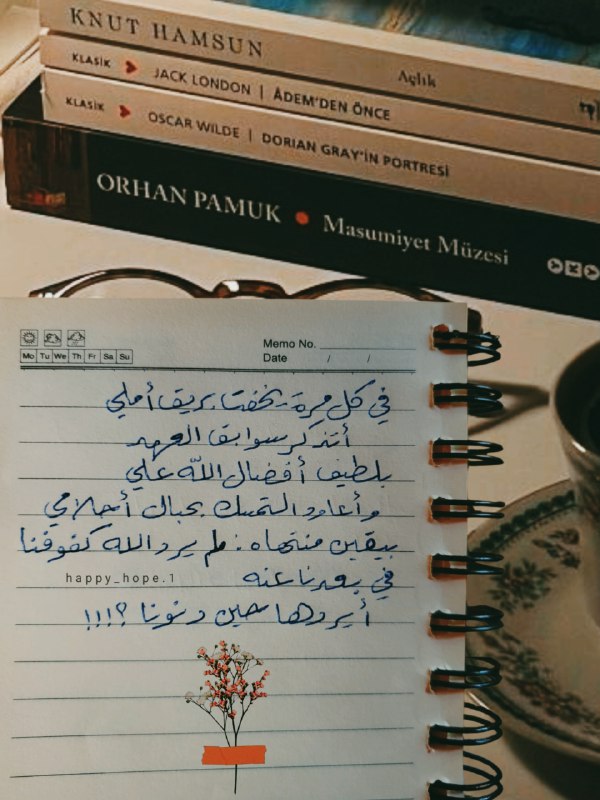 KNUT HAMSUN Açlık
KLASİK JACK LONDON | ÂDEM'DEN ÖNCE
KLASİK OSCAR WILDE | DORIAN GRAY'İN PORTRESİ
ORHAN PAMUK • Masumiyet Müzesi
Memo No.
Mo Tu We Th Fr Sa Su
Date / /
في كل مرة يخفت بريق أملي
أتذكر سوابق العهد
بلطيف أفضال الله علي
وأعاود التمسك بحبال أحلامي
بيقين منتهاه: لم يرد الله كفوفنا
في بعدنا عنه
happy_hope.1
أيردها حين دنونا ؟!!!